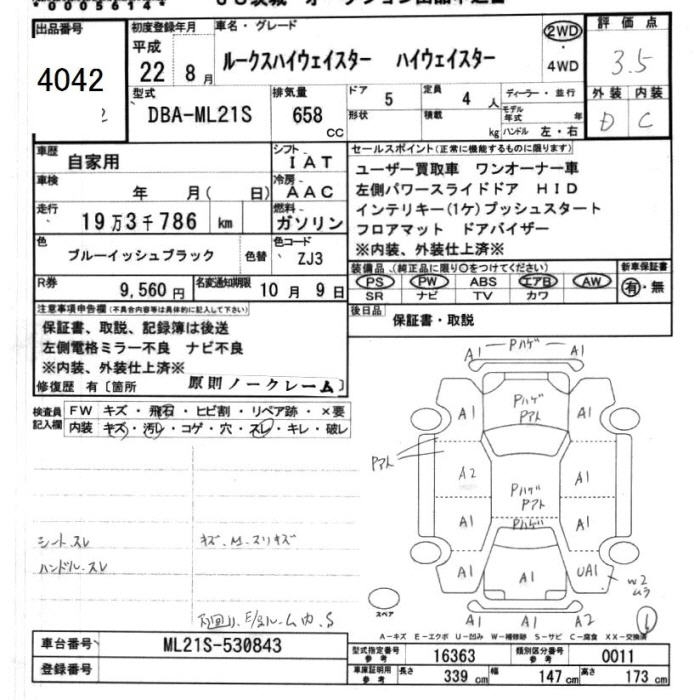 *00056144*
出品番号
4042
2
初度登録年月
平成
22年 8月
車名・グレード
ルークスハイウェイスター ハイウェイスター
2WD
・
4WD
評価点
3.5
外装 内装
D C
型式
DBA-ML21S
排気量
658
CC
ドア 5
形状
定員 4人
積載 kg
ディーラー・並行
モデル年式 年
ハンドル 左・右
車歴
自家用
シフト
IAT
車検
年 月( 日)
冷房
AAC
走行
19万3千786 km
燃料
ガソリン
色
ブルーイッシュブラック
色替
色コード
ZJ3
R券
9,560円
名変通知期限
10月 9日
セールスポイント(正常に機能するものに限ります)
ユーザー買取車 ワンオーナー車
左側パワースライドドア HID
インテリキー(1ケ)プッシュスタート
フロアマット ドアバイザー
※内装、外装仕上済※
装備品(純正品に限り○をつけてください)
PS PW ABS エアB AW
SR ナビ TV カワ
新車保証書
有・無
後日品
保証書・取説
注意事項申告欄(不具合内容等は具体的に記入して下さい)
保証書、取説、記録簿は後送
左側電格ミラー不良 ナビ不良
※内装、外装仕上済※
修復歴 有〔箇所 原則ノークレーム〕
検査員記入欄
FW キズ・飛石・ヒビ割・リペア跡・×要
内装 キズ・汚レ・コゲ・穴・スレ・キレ・破レ
シートスレ
ハンドルスレ
キズ.M.スリキズ
下回り、E/gルーム内.S
A1 Pハゲ A1
A1 Pハゲ Pアト A1
Pアト
A2 Pハゲ Pアト A1
A1 Pハゲ A1
A1 A1 UA1
W2
ムラ
A1 A1 A2
スペア
6
A-キズ E-エクボ U-凹み W-補修跡 S-サビ C-腐食 XX-交換済
車台番号
ML21S-530843
登録番号
型式指定番号 参考
16363
類別区分番号 参考
0011
車庫証明用 参考
長さ 339 cm
幅 147 cm
高さ 173 cm